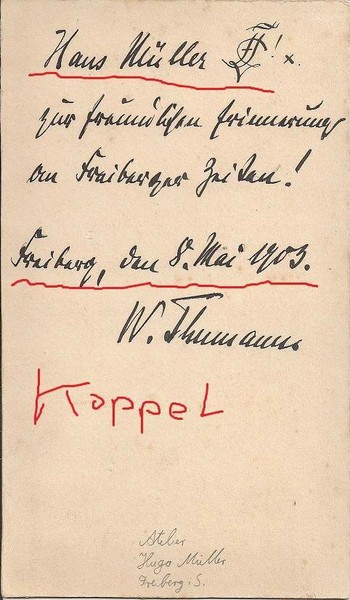 Hans Müller ! x.
zur freundlichen Erinnerung
an Freiberger Zeiten!
Freiberg, den 8. Mai 1903.
W. Thumann
Koppel
Atelier
Hugo Müller
Freiberg i. S.